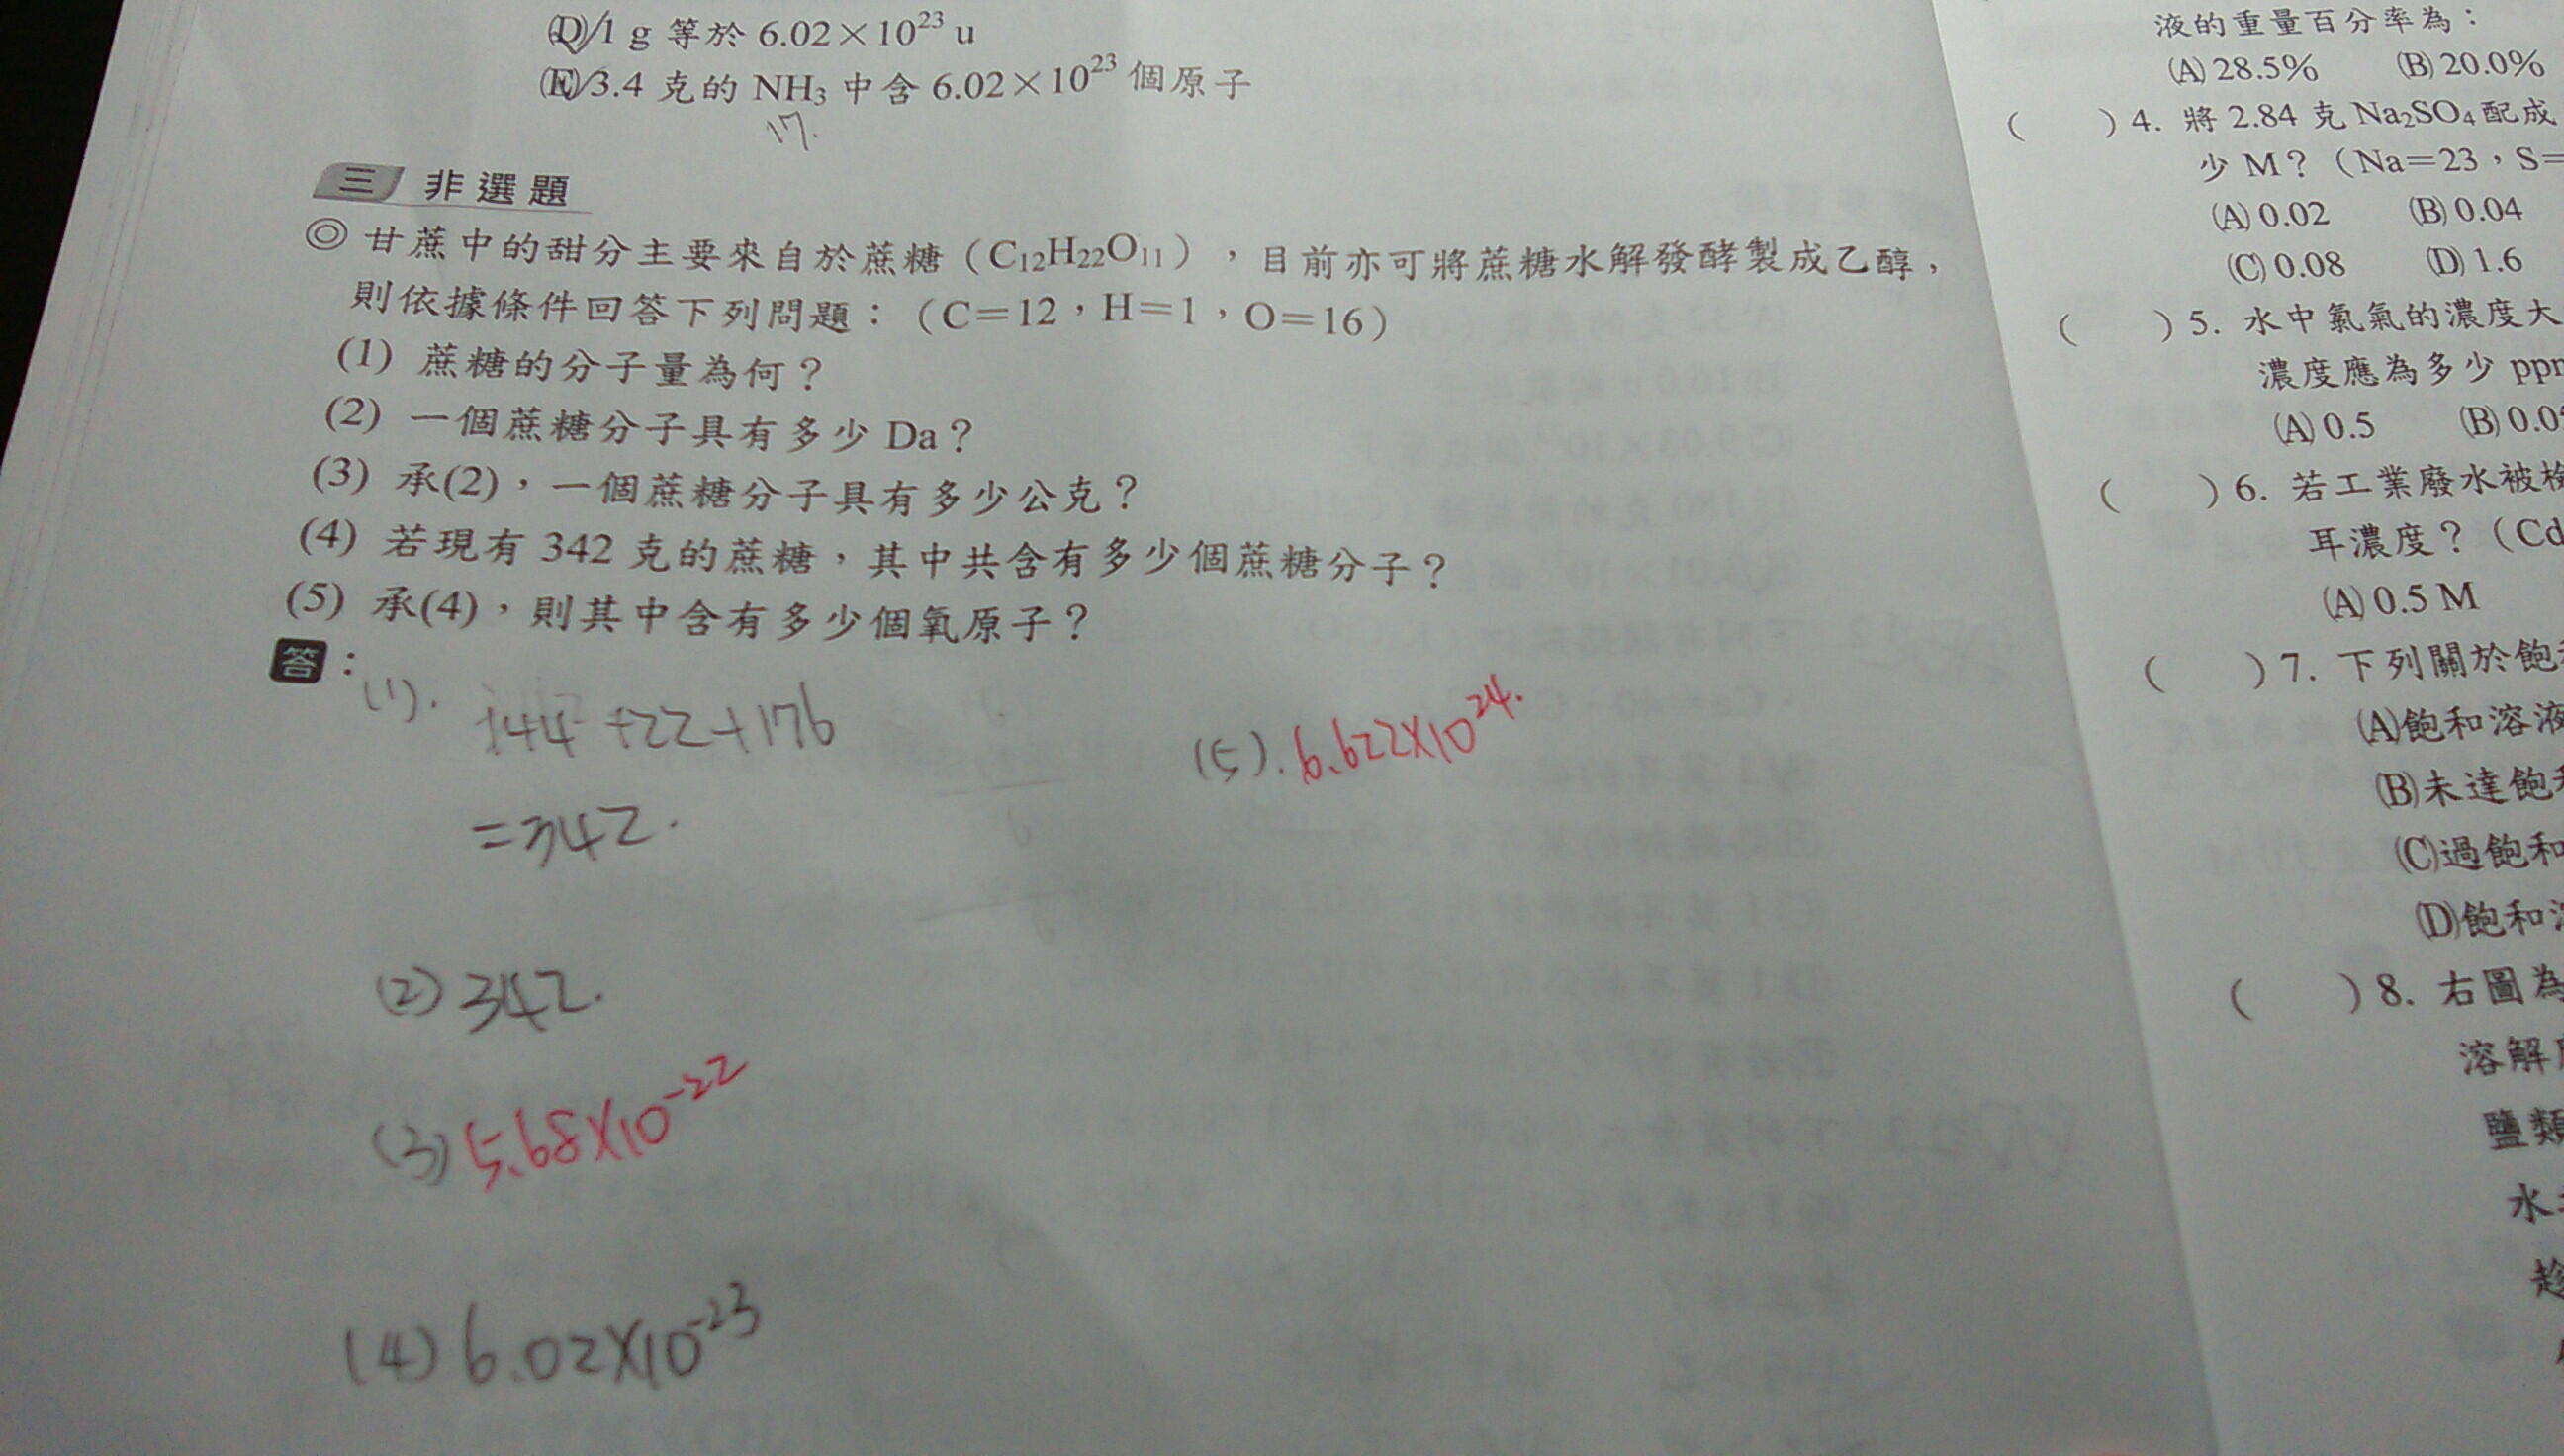 (D)1 g 等於 6.02×10²³ u
(E)3.4 克的 NH₃ 中含 6.02×10²³ 個原子
17.
三 非選題
◎ 甘蔗中的甜分主要來自於蔗糖（C₁₂H₂₂O₁₁），目前亦可將蔗糖水解發酵製成乙醇，
則依據條件回答下列問題：（C＝12，H＝1，O＝16）
(1) 蔗糖的分子量為何？
(2) 一個蔗糖分子具有多少 Da？
(3) 承(2)，一個蔗糖分子具有多少公克？
(4) 若現有 342 克的蔗糖，其中共含有多少個蔗糖分子？
(5) 承(4)，則其中含有多少個氧原子？
答：
(1). 144+22+176
=342.
(2) 342.
(3) 5.68×10⁻²²
(4) 6.02×10⁻²³
(5). 6.622×10²⁴.
液的重量百分率為：
(A) 28.5% (B) 20.0%
( ) 4. 將 2.84 克 Na₂SO₄ 配成
少 M？（Na＝23，S＝
(A) 0.02 (B) 0.04
(C) 0.08 (D) 1.6
( ) 5. 水中氯氣的濃度大
濃度應為多少 pp
(A) 0.5 (B) 0.0
( ) 6. 若工業廢水被檢
耳濃度？（Cd
(A) 0.5 M
( ) 7. 下列關於飽
(A)飽和溶液
(B)未達飽
(C)過飽和
(D)飽和
( ) 8. 右圖為
溶解
鹽類
水
趁